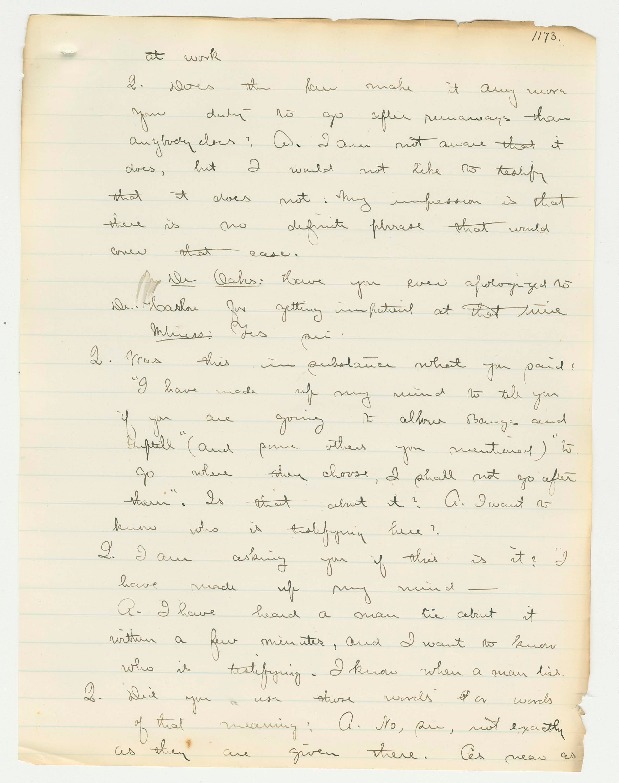 1173.
at work
Q. Does the law make it any more
your duty to go after runaways than
anybody elses? A. I am not aware that it
does, but I would not like to testify
that it does not. My impression is that
there is no definite phrase that would
cover that case.
Dr. Oaks: Have you ever apologized to
Dr. for getting impatient at that time
Witness: Yes sir.
Q. Was this in substance what you said:
"I have made up my mind to tell you
if you are going to allow Bangs and
(and some others you mentioned) "to
go where they choose, I shall not go after
them". Is that about it? A. I want to
know who is testifying here?
Q. I am asking you if this is it? "I
have made up my mind —
A. I have heard a man lie about it
within a few minutes, and I want to know
who is testifying. I know when a man lies.
Q. Did you use those words or words
of that meaning? A. No, sir, not exactly
as they are given there. As near as